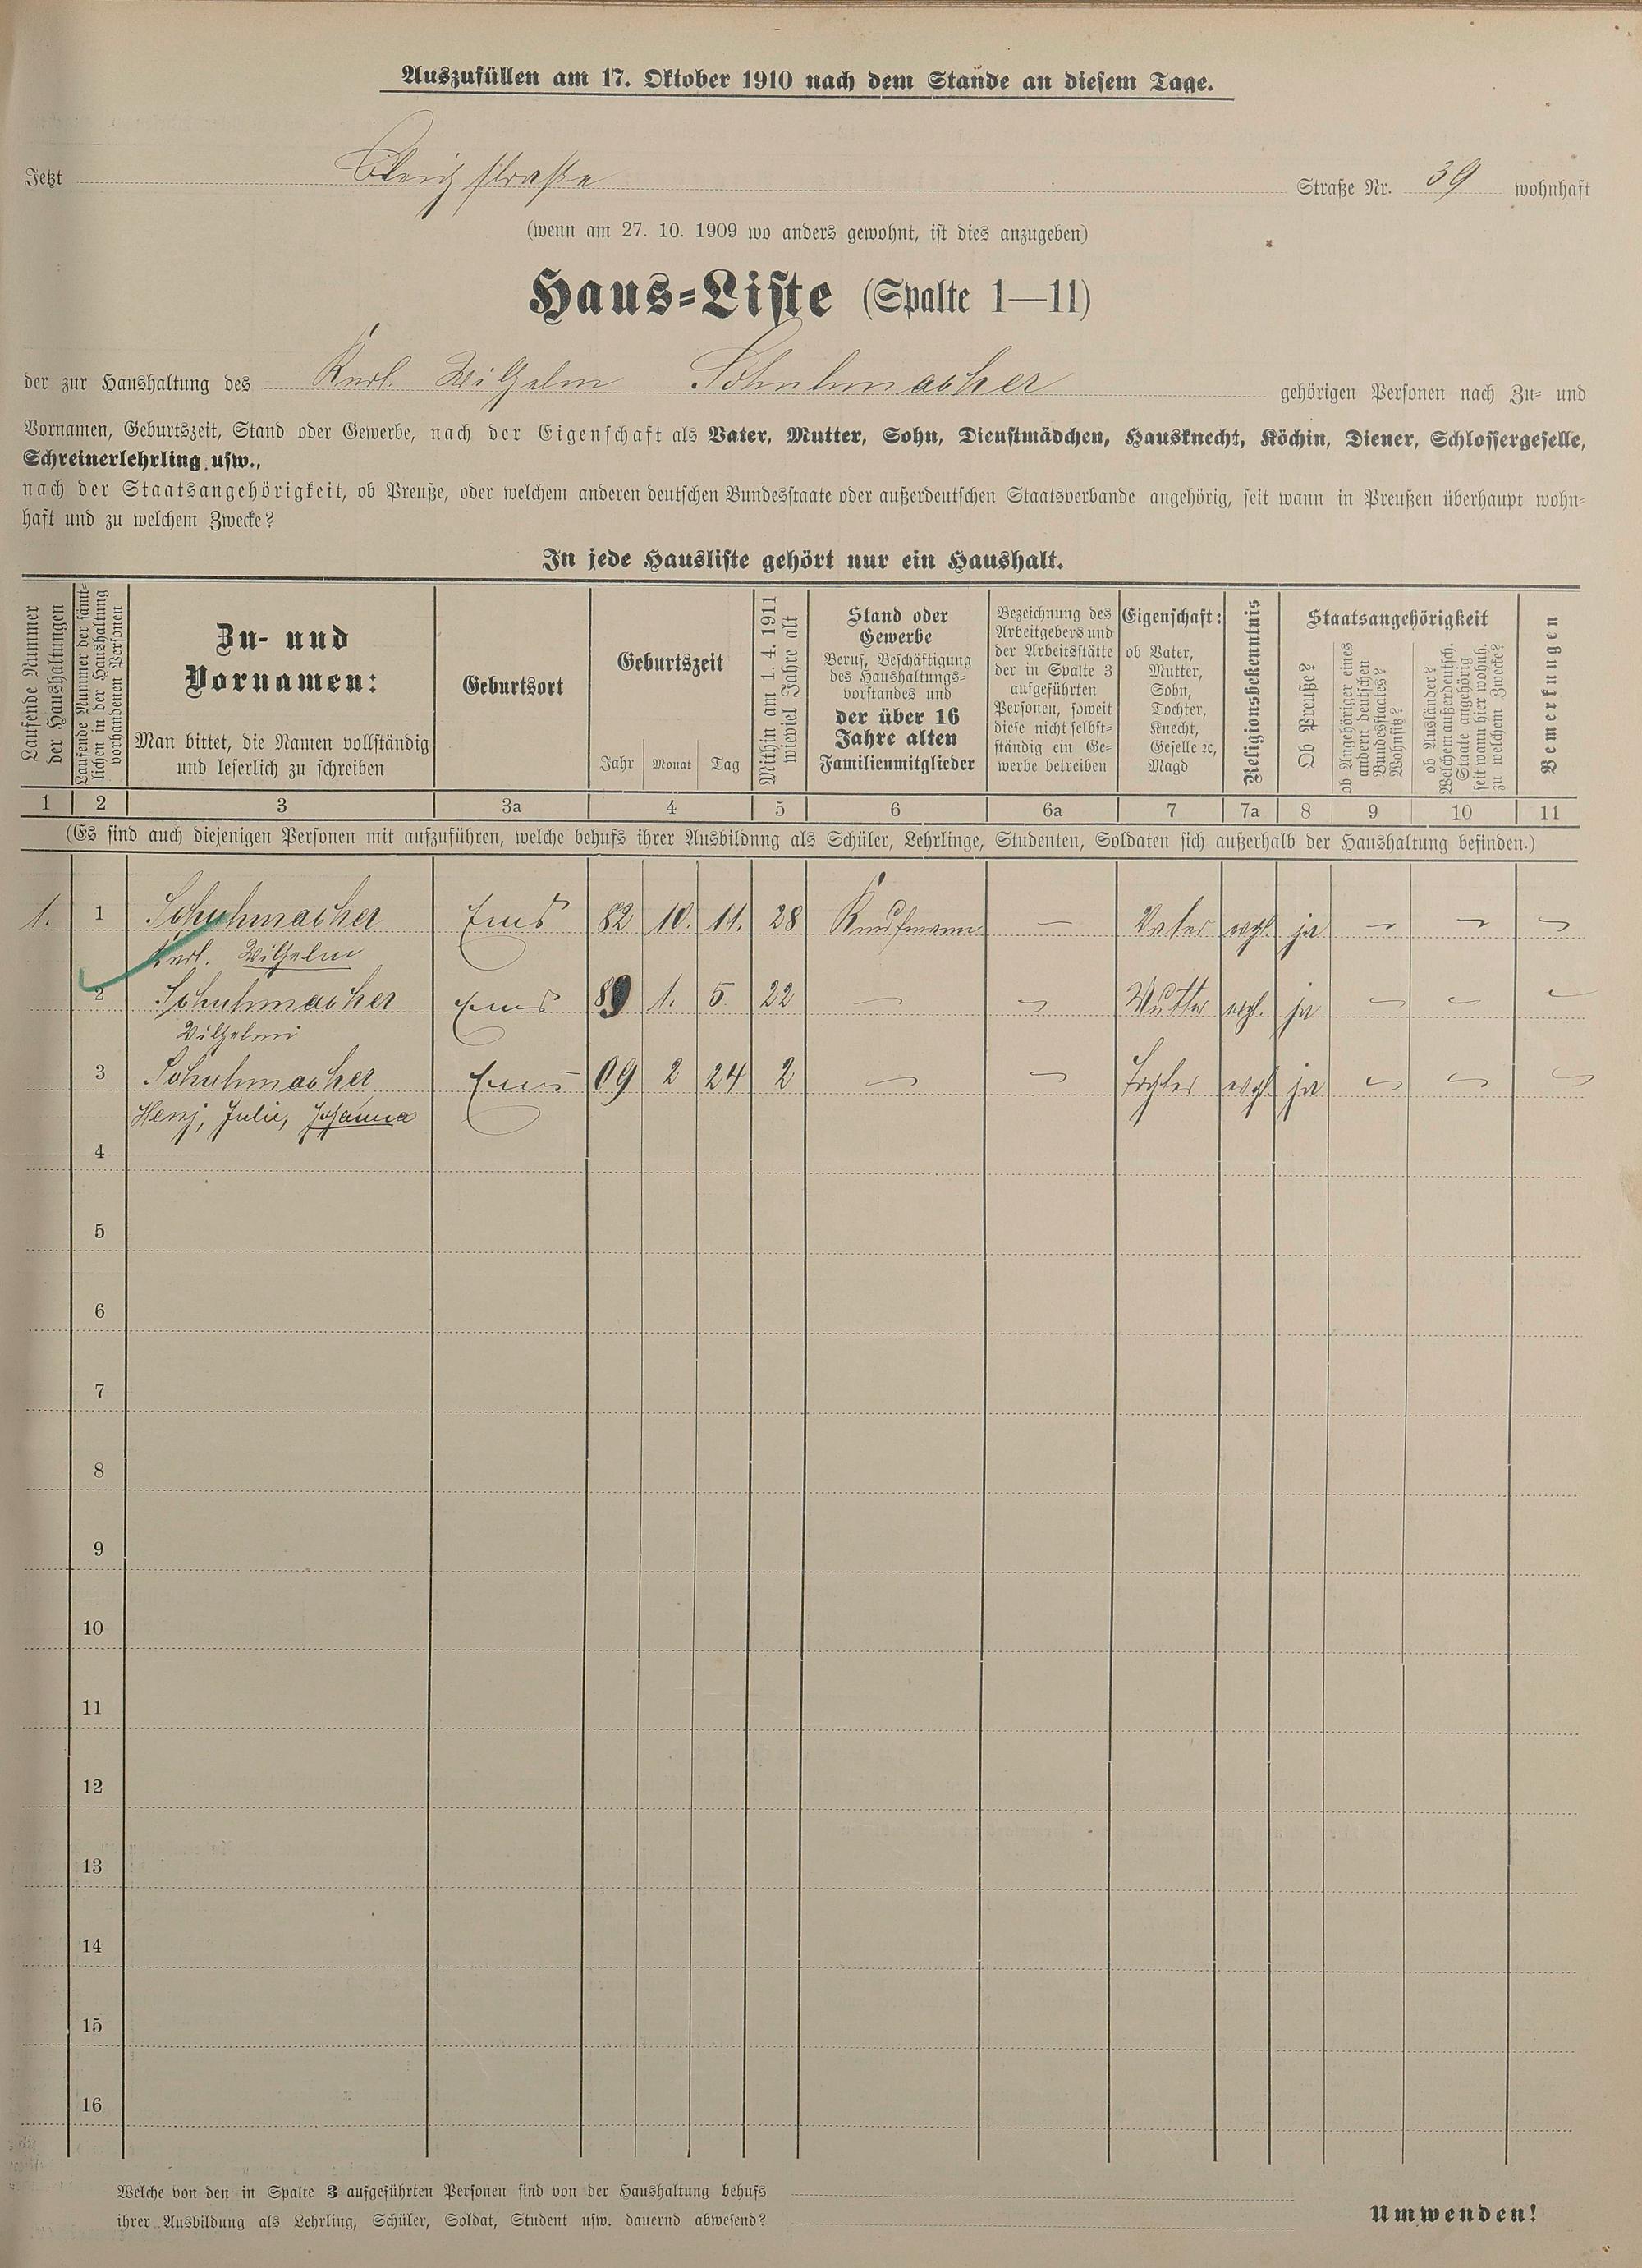 Auszufüllen am 17. Oktober 1910 nach dem Stande an diesem Tage.
Jetzt Bleichstraße Straße Nr. 39 wohnhaft
(wenn am 27. 10. 1909 wo anders gewohnt, ist dies anzugeben)
Haus-Liste (Spalte 1—11)
der zur Haushaltung des Karl Wilhelm Schuhmacher gehörigen Personen nach Zu- und
Vornamen, Geburtszeit, Stand oder Gewerbe, nach der Eigenschaft als Vater, Mutter, Sohn, Dienstmädchen, Hausknecht, Köchin, Diener, Schlossergeselle,
Schreinerlehrling usw.,
nach der Staatsangehörigkeit, ob Preuße, oder welchem anderen deutschen Bundesstaate oder außerdeutschen Staatsverbande angehörig, seit wann in Preußen überhaupt wohn-
haft und zu welchem Zwecke?
In jede Hausliste gehört nur ein Haushalt.
Laufende Nummer
der Haushaltungen
Laufende Nummer der sämt-
lichen in der Haushaltung
vorhandenen Personen
Zu- und
Vornamen:
Man bittet, die Namen vollständig
und leserlich zu schreiben
Geburtsort
Geburtszeit
Jahr Monat Tag
Mithin am 1. 4. 1911
wieviel Jahre alt
Stand oder
Gewerbe
Beruf, Beschäftigung
des Haushaltungs-
vorstandes und
der über 16
Jahre alten
Familienmitglieder
Bezeichnung des
Arbeitgebers und
der Arbeitsstätte
der in Spalte 3
aufgeführten
Personen, soweit
diese nicht selbst-
ständig ein Ge-
werbe betreiben
Eigenschaft:
ob Vater,
Mutter,
Sohn,
Tochter,
Knecht,
Geselle ꝛc,
Magd
Religionsbekenntnis
Staatsangehörigkeit
Ob Preuße?
ob Angehöriger eines
andern deutschen
Bundesstaates?
Wohnsitz?
ob Ausländer?
Welchem außerdeutsch.
Staate angehörig
seit wann hier wohnh.
zu welchem Zwecke?
Bemerkungen
1 2 3 3a 4 5 6 6a 7 7a 8 9 10 11
(Es sind auch diejenigen Personen mit aufzuführen, welche behufs ihrer Ausbildung als Schüler, Lehrlinge, Studenten, Soldaten sich außerhalb der Haushaltung befinden.)
1. 1 Schuhmacher Ems 82 10. 11. 28 Kaufmann — Vater evgl. ja — — —
Karl. Wilhelm
2 Schuhmacher Ems 89 1. 5. 22 — — Mutter evgl. ja — — —
Wilhelmi
3 Schuhmacher Ems 09 2 24 2 — — Tochter evgl. ja — — —
Julie, Johanna
4
5
6
7
8
9
10
11
12
13
14
15
16
Welche von den in Spalte 3 aufgeführten Personen sind von der Haushaltung behufs
ihrer Ausbildung als Lehrling, Schüler, Soldat, Student usw. dauernd abwesend?
Umwenden!